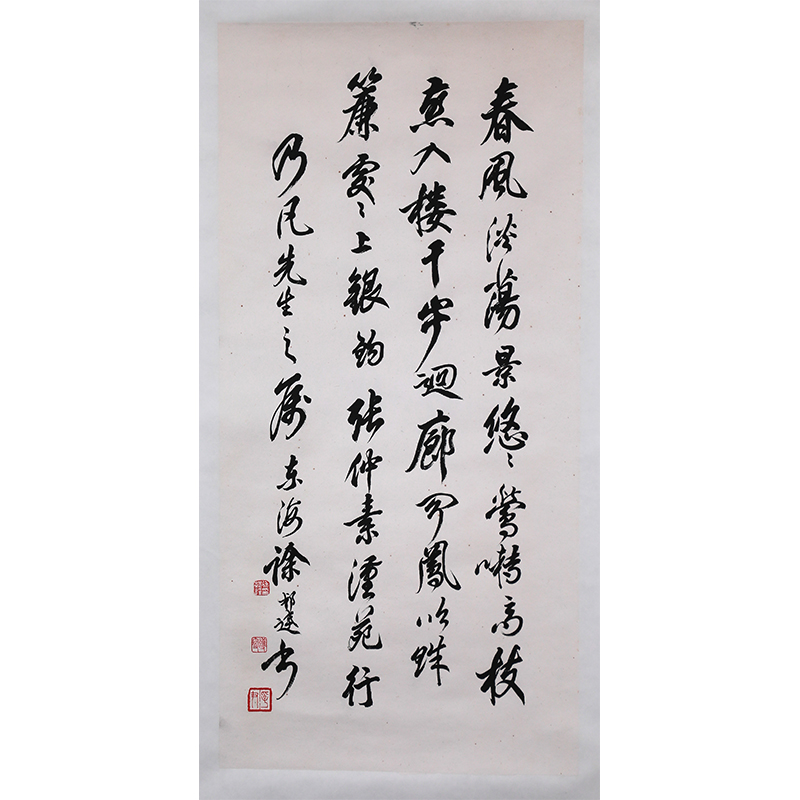 春風淡蕩景悠〻鶯囀高枝
燕入楼千步迴廊闻鳳吹珠
簾處〻上銀鈎張仲素漢苑行
乃凡先生之属东海徐邦達书